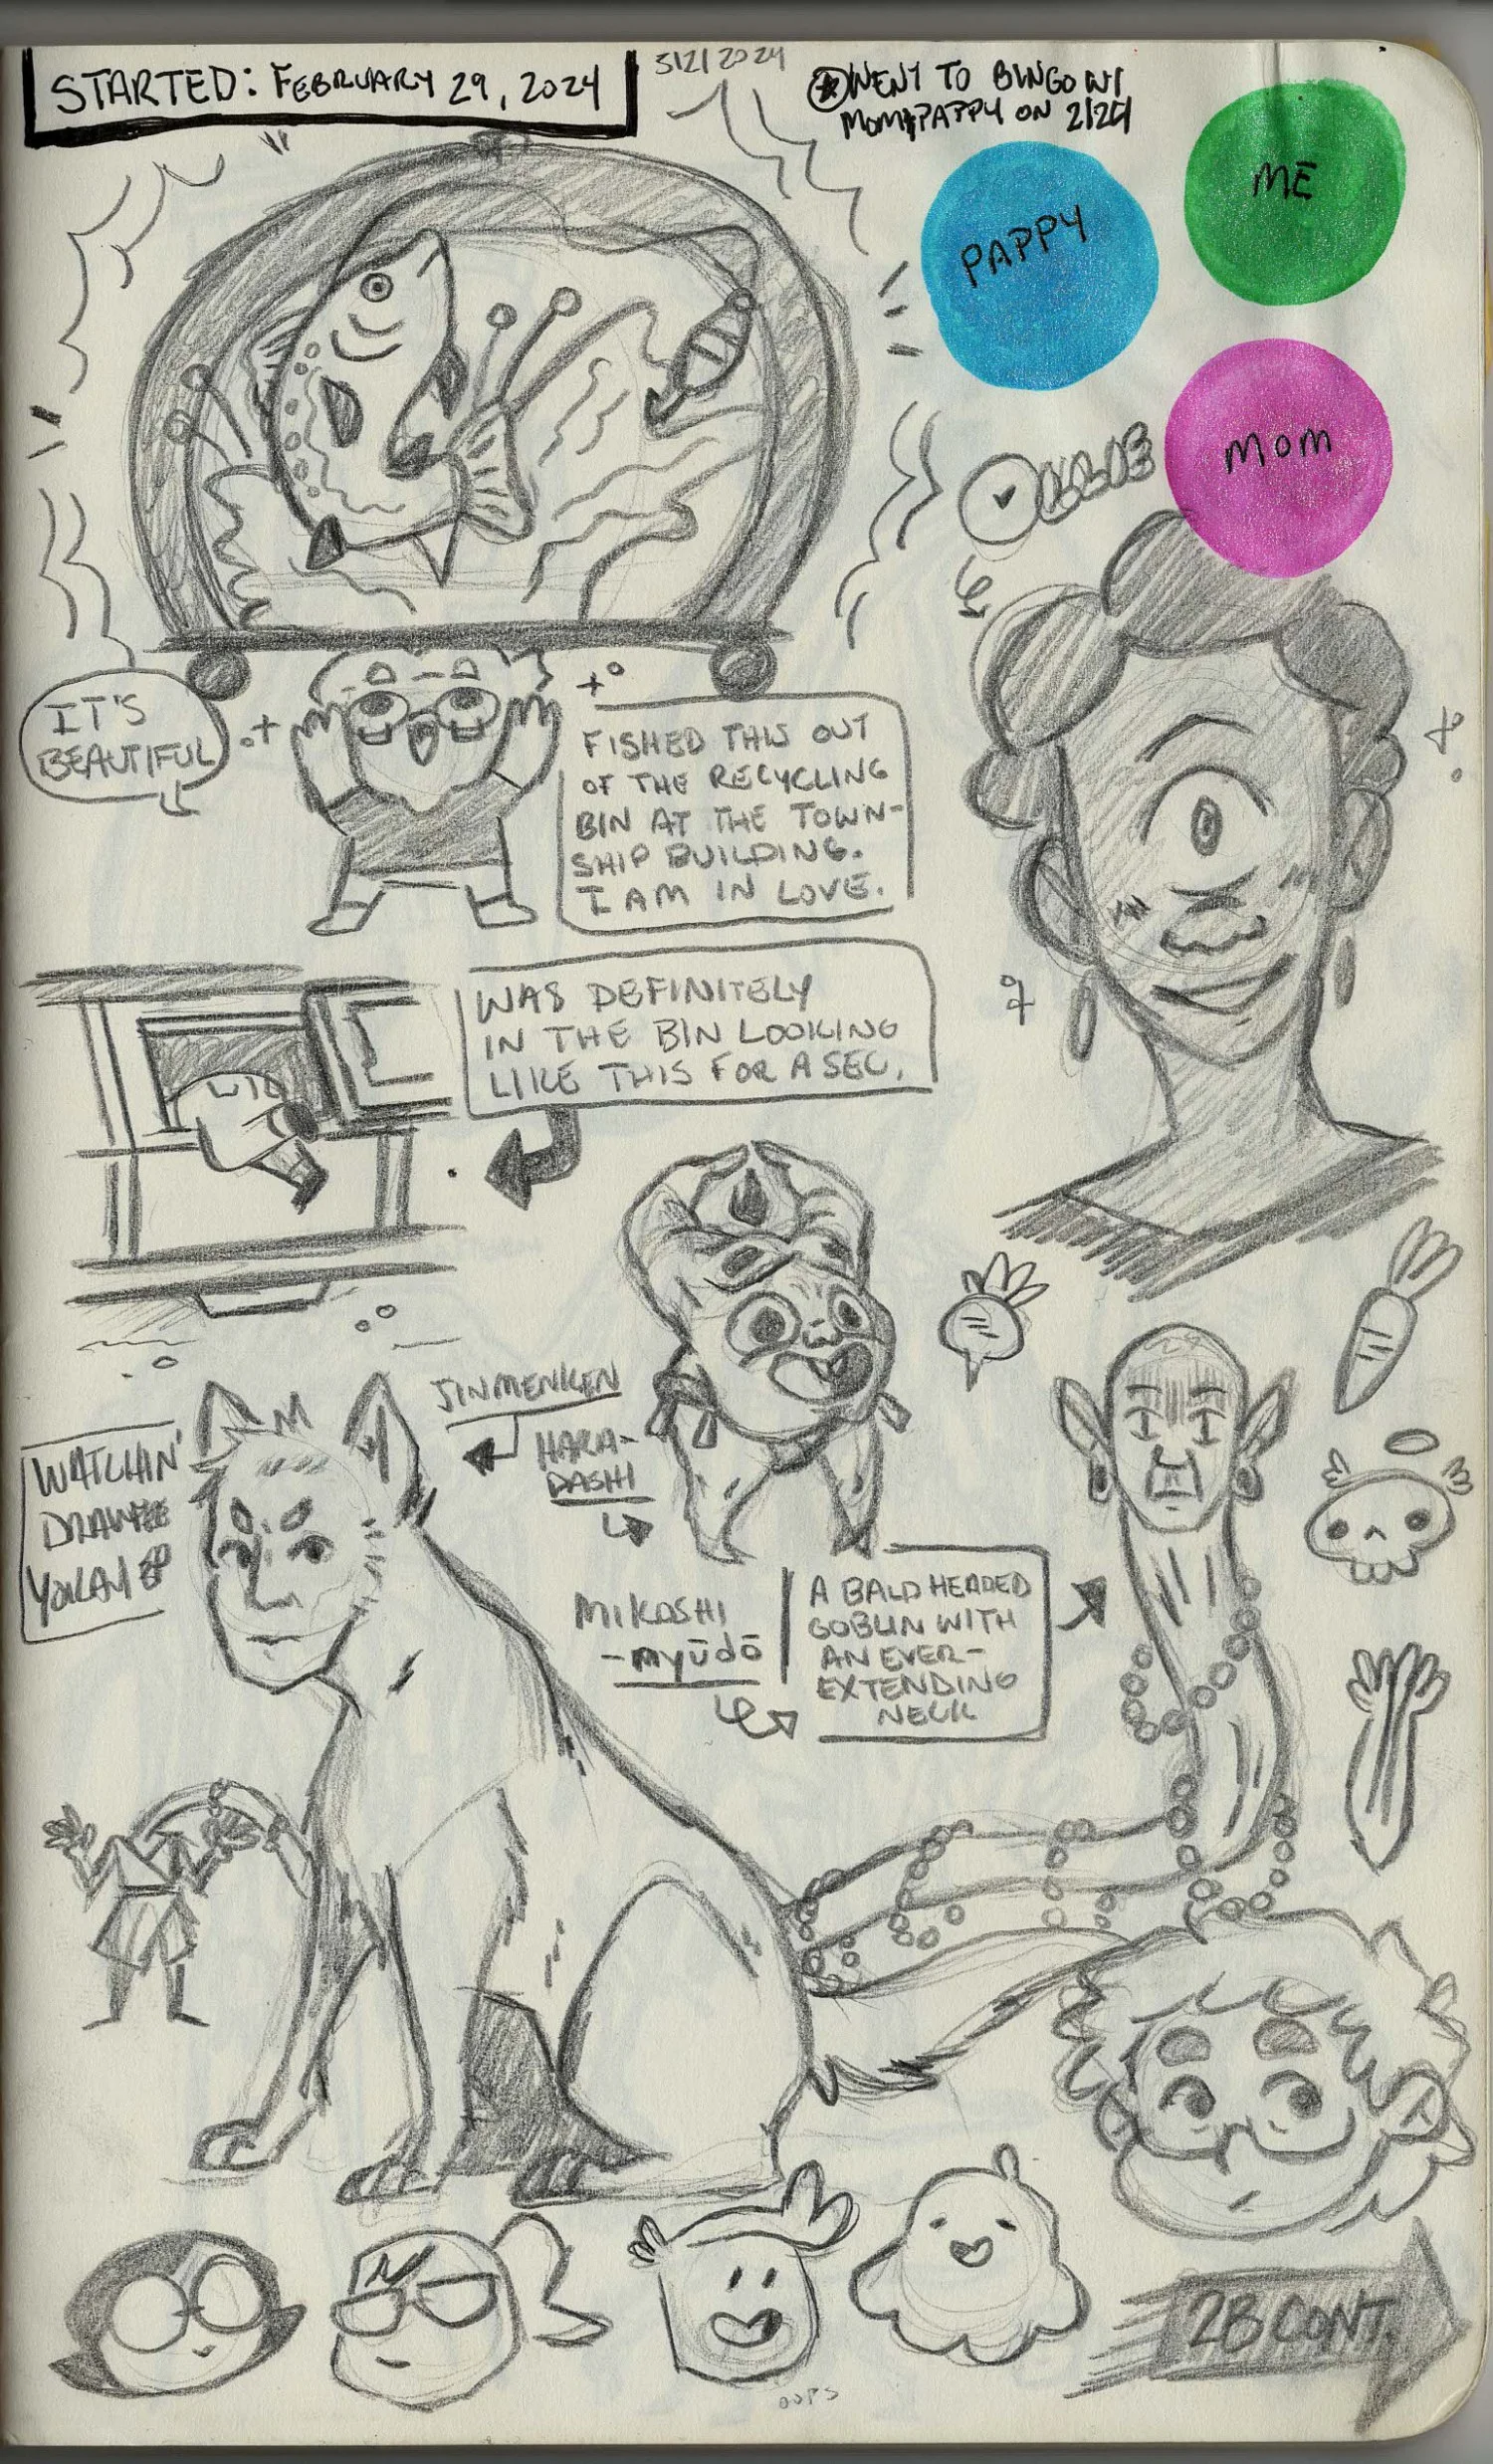 STARTED: FEBRUARY 29, 2024
5/2/2024
WENT TO BINGO W/
MOM & PAPPY ON 2/29
PAPPY
ME
MOM
IT'S
BEAUTIFUL
FISHED THIS OUT
OF THE RECYCLING
BIN AT THE TOWN-
SHIP BUILDING.
I AM IN LOVE.
WAS DEFINITELY
IN THE BIN LOOKING
LIKE THIS FOR A SEC.
JINMENKEN
HARA-
DASHI
WATCHIN'
DRAWFEE
YOKAI EP
MIKOSHI
-nyūdō
A BALD HEADED
GOBLIN WITH
AN EVER-
EXTENDING
NECK
OOPS
2B CONT.